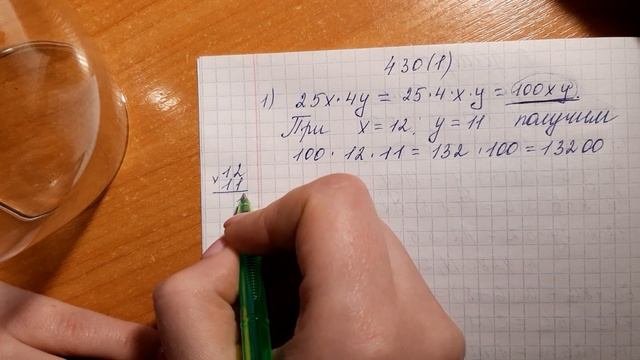 430(1)
1) 25x·4y = 25·4·x·y = 100xy.
При x=12; y=11 получим
100·12·11=132·100=13200
×12
11